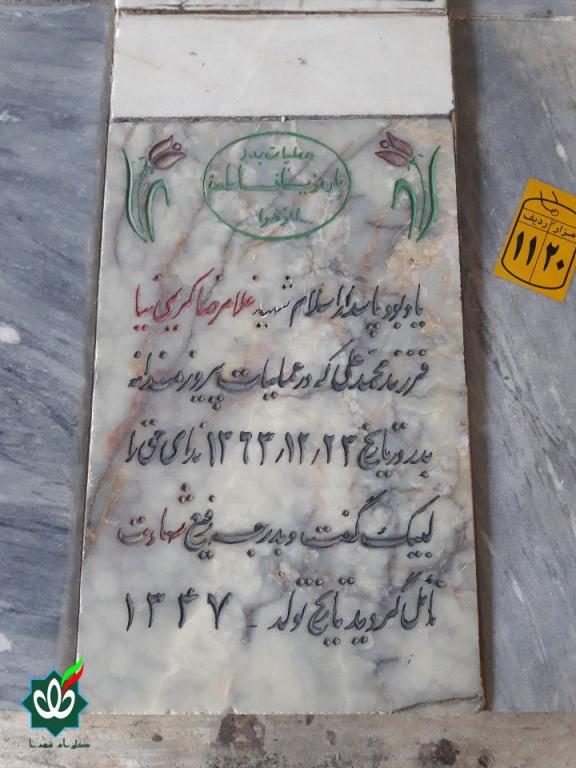 عملیات بدر
با رمز یا فاطمة
الزهرا
یادبود پاسدار اسلام شهید غلامرضا کریمی نیا
فرزند محمد علی که در عملیات پیروزمندانه
بدر در تاریخ ۱۳۶۳٫۱۲٫۲۳ ندای حق را
لبیک گفت و بدرجه رفیع شهادت
نائل گردید تاریخ تولد ۱۳۴۷
مزار ردیف
۱۱ ۲۰
گلزار شهدا